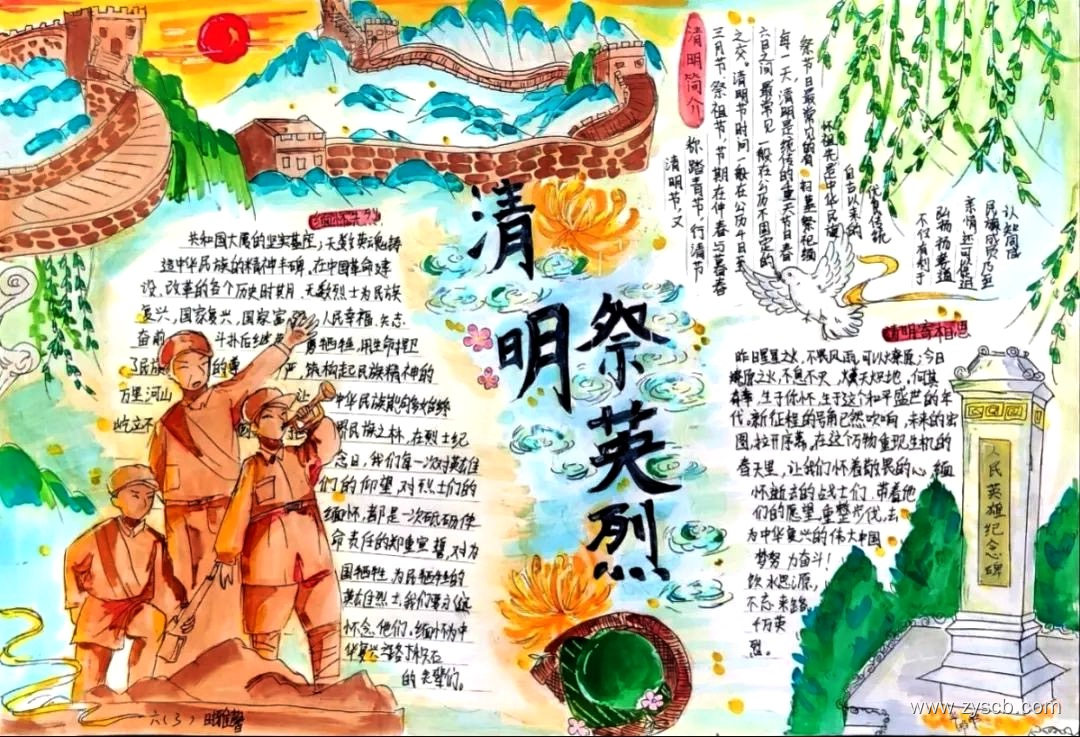 清明祭英烈
缅怀先烈
共和国大厦的坚实基座,无数英魂铸
造中华民族的精神丰碑,在中国革命建
设、改革的各个历史时期,无数烈士为民族
复兴,国家复兴,国家富 人民幸福,矢志
奋前 斗扑后继 勇牺牲,用生命捍卫
了民族 的尊 严,铸构起民族精神的
万里河山 让 中华民族能够始终
屹立不 界民族之林,在烈士纪
念日,我们每一次对英雄
们的仰望,对烈士们的
缅怀,都是一次砥砺使
命责任的郑重宣誓,对为
国牺牲,为民牺牲的
英雄烈士,我们要永远
怀念他们,缅怀为中
华复兴
的先辈们。
清明简介
清明节,又
称踏青节,行清节
三月节祭祖节,节期在仲春与暮春
之交。清明节时间一般在公历4日至
六日之间最常见一般在公历不固定的
每一天,清明是传统的重大节日春
祭节日最常见的有扫墓祭祀缅
怀祖先是中华民族
自古以来的
优良传统
不仅有利于
弘扬孝道
亲情还可促进
民族感贝乃至
认知同感
清明寄相思
昨日星星之火,不畏风雨,可以燎原;今日
燎原之火,不息不灭,燎天炽地,何其
有幸,生于你怀,生于这个和平盛世的年
代,新征程的号角已然吹响,未来的宏
图,拉开序幕,在这个万物重现生机的
春天里,让我们怀着敬畏的心,缅
怀逝去的战士们,带着他
们的愿望,重整步伐,去
为中华复兴的伟大中国
梦努力奋斗!
饮水思源,
不忘来路,
千万英
烈。
人民英雄纪念碑
六(3)
www.zyscb.com